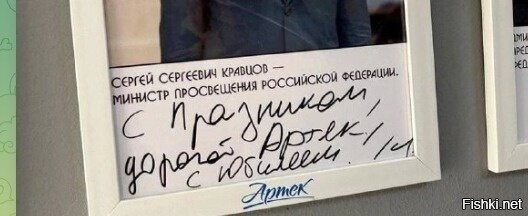 СЕРГЕЙ СЕРГЕЕВИЧ КРАВЦОВ —
МИНИСТР ПРОСВЕЩЕНИЯ РОССИЙСКОЙ ФЕДЕРАЦИИ.
С Празником,
дорогой Артек,
с Юбилеем.
Артек
Fishki.net